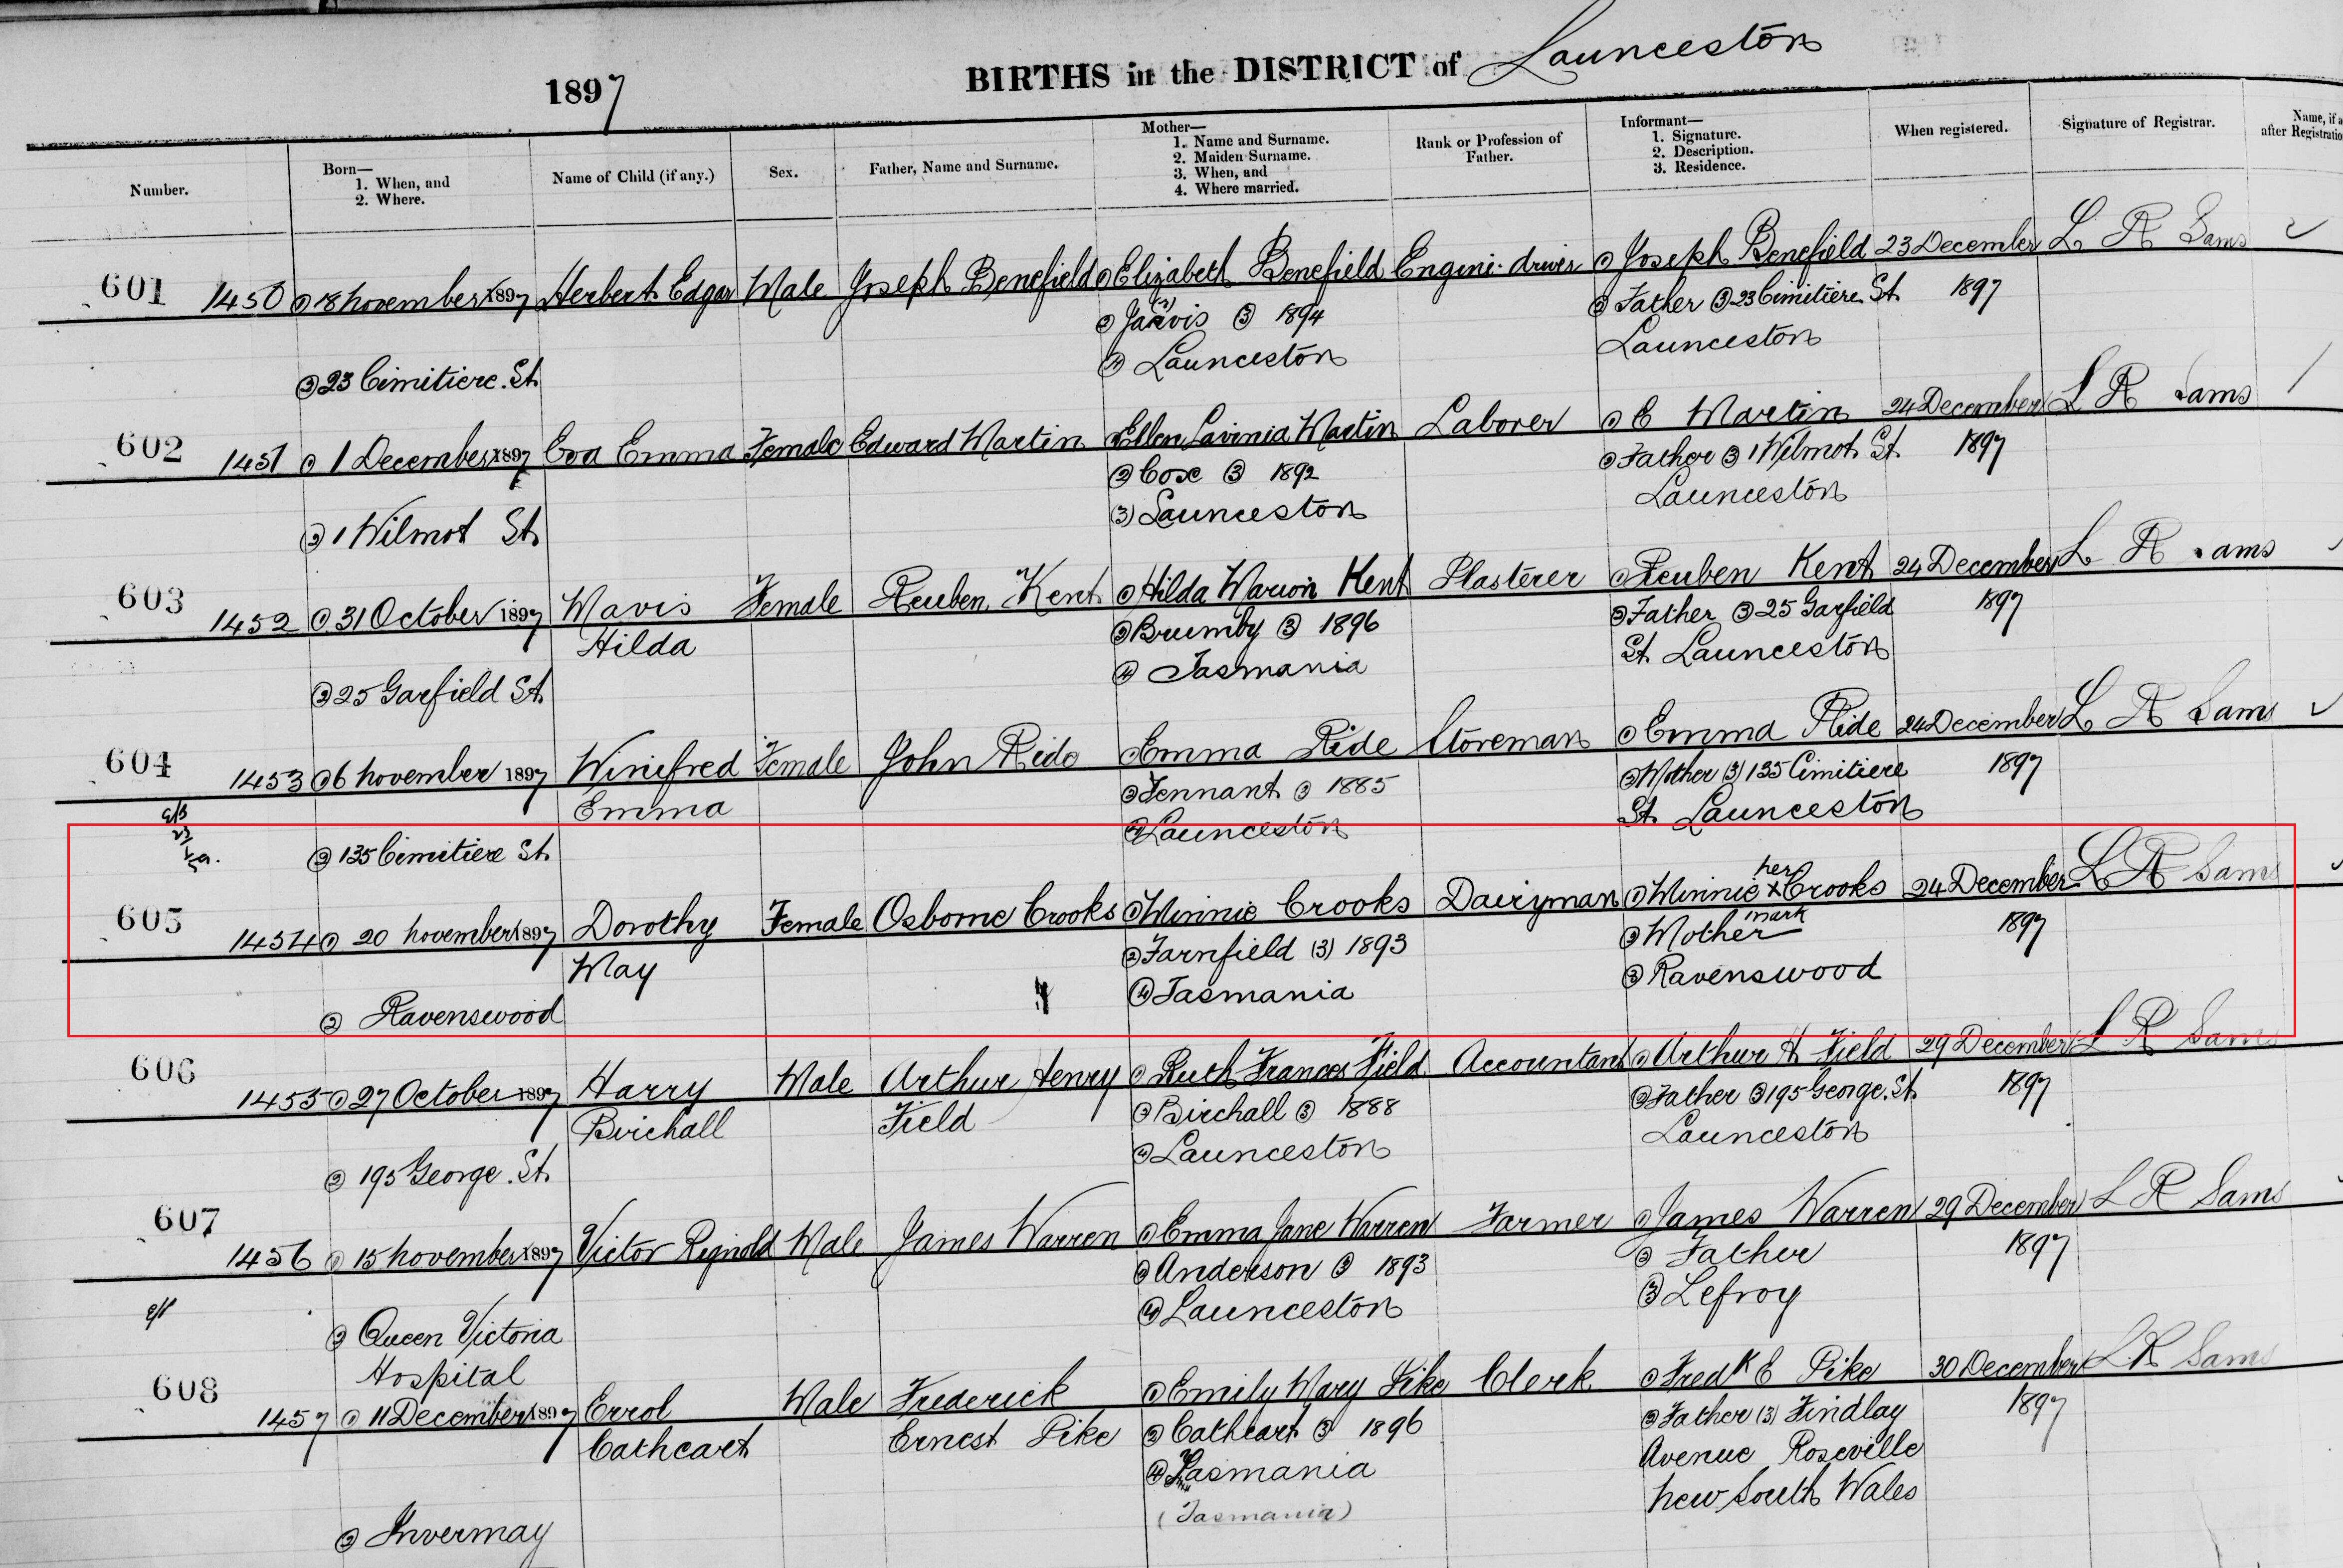 1897
BIRTHS in the DISTRICT of Launceston
Number.
Born—
1. When, and
2. Where.
Name of Child (if any.)
Sex.
Father, Name and Surname.
Mother—
1. Name and Surname.
2. Maiden Surname.
3. When, and
4. Where married.
Rank or Profession of
Father.
Informant—
1. Signature.
2. Description.
3. Residence.
When registered.
Signature of Registrar.
Name, if a
after Registratio
601 1450 ① 18 November 1897 Herbert Edgar Male Joseph Benefield ① Elizabeth Benefield Engine driver ① Joseph Benefield 23 December L R Sams
② Jarvis ③ 1894 ② Father ③ 23 Cimitiere St 1897
④ Launceston Launceston
② 23 Cimitiere St
602 1451 ① 1 December 1897 Eva Emma Female Edward Martin ① Ellen Lavinia Martin Laborer ① E Martin 24 December L R Sams
② Cox ③ 1892 ② Father ③ 1 Wilmot St 1897
(3) Launceston Launceston
② 1 Wilmot St
603 1452 ① 31 October 1897 Mavis Female Reuben Kent ① Hilda Marion Kent Plasterer ① Reuben Kent 24 December L R Sams
Hilda ② Brumby ③ 1896 ② Father ③ 25 Garfield 1897
④ Tasmania St Launceston
② 25 Garfield St
604 1453 ① 6 November 1897 Winifred Female John Ride ① Emma Ride Storeman ① Emma Ride 24 December L R Sams
Emma ② Tennant ③ 1885 ② Mother (3) 135 Cimitiere 1897
④ Launceston St Launceston
② 135 Cimitiere St
her
605 1454 ① 20 November 1897 Dorothy Female Osborne Crooks ① Minnie Crooks Dairyman ① Minnie X Crooks 24 December L R Sams
mark
May ② Farnfield (3) 1893 ② Mother 1897
④ Tasmania ③ Ravenswood
② Ravenswood
606 1455 ① 27 October 1897 Harry Male Arthur Henry ① Ruth Frances Field Accountant ① Arthur H Field 29 December L R Sams
Birchall Field ② Birchall ③ 1888 ② Father ③ 195 George St 1897
④ Launceston Launceston
② 195 George St
607 1456 ① 15 November 1897 Victor Reginold Male James Warren ① Emma Jane Warren Farmer ① James Warren 29 December L R Sams
② Anderson ③ 1893 ② Father 1897
④ Launceston ③ Lefroy
② Queen Victoria
Hospital
608 1457 ① 11 December 1897 Errol Male Frederick ① Emily Mary Pike Clerk ① Fredk E Pike 30 December L R Sams
Cathcart Ernest Pike ② Cathcart ③ 1896 ② Father (3) Findlay 1897
④ Tasmania Avenue Roseville
(Tasmania) New South Wales
② Invermay